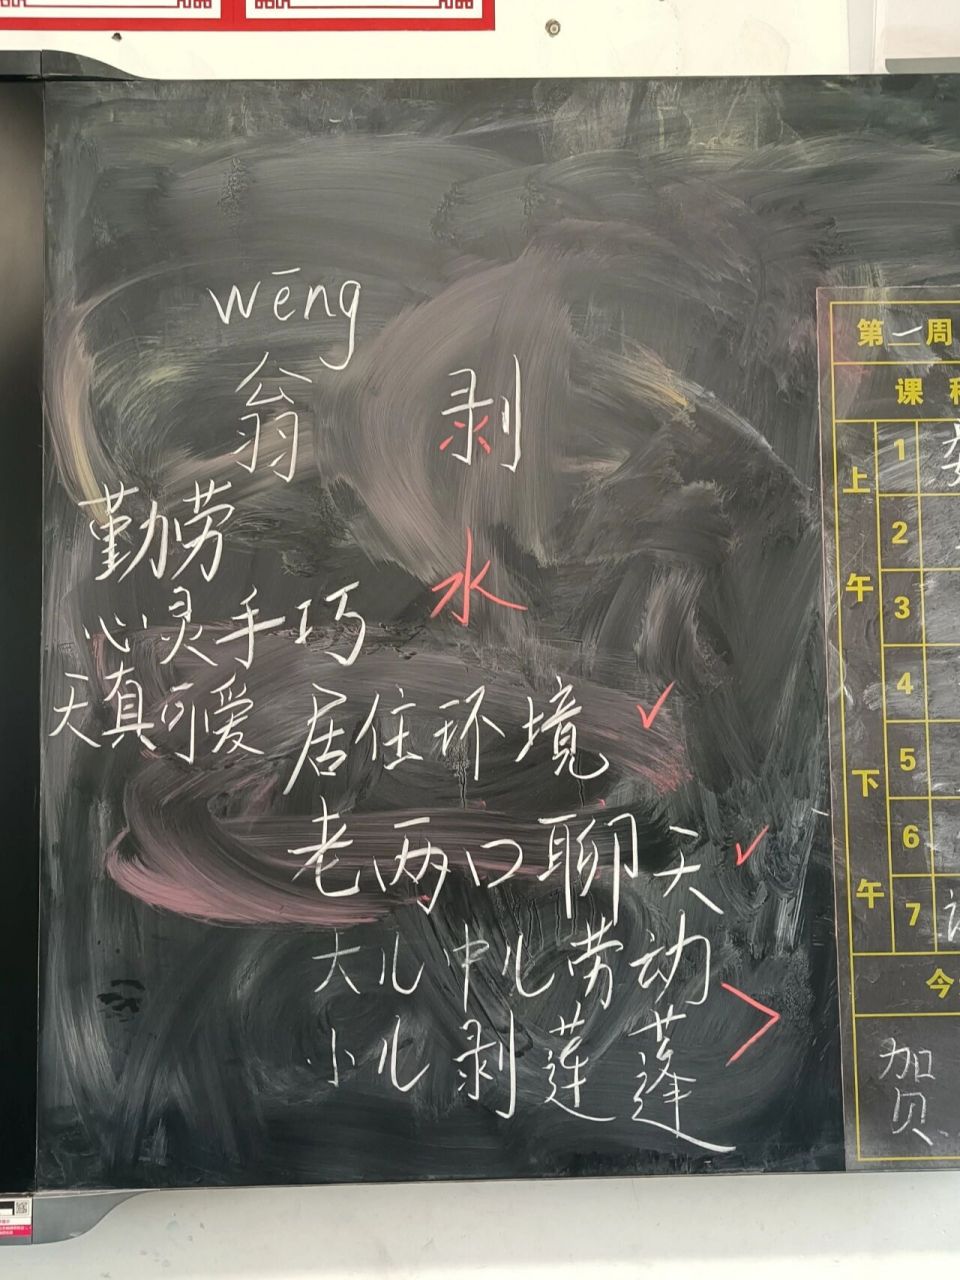 wēng
翁 剥
水
勤劳
心灵手巧
天真可爱
居住环境 ✓
老两口聊天 ✓
大儿中儿劳动
小儿剥莲蓬
第一周
课
上午
1
2
3
4
下午
5
6
7
今
加
贝